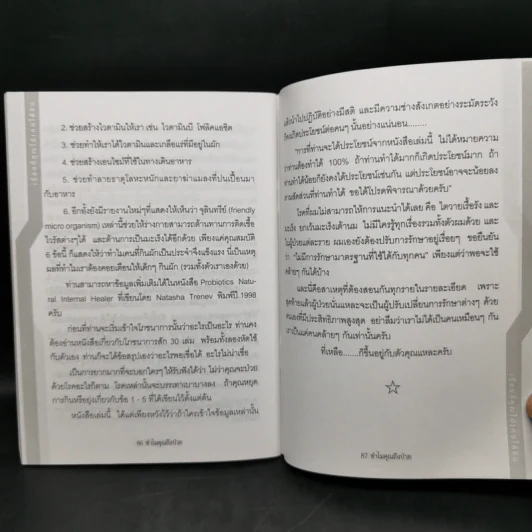 2. ช่วยสร้างไวตามินให้เรา เช่น ไวตามินบี โฟลิคแอซิด
3. ช่วยทำให้เราได้ไวตามินและเกลือแร่ที่มีอยู่ในผัก
4. ช่วยสร้างเอนไซม์ที่ใช้ในทางเดินอาหาร
5. ช่วยทำลายธาตุโลหะหนักและยาฆ่าแมลงที่ปนเปื้อนมา
กับอาหาร
6. อีกทั้งยังมีรายงานใหม่ๆที่แสดงให้เห็นว่า จุลินทรีย์ (friendly
micro organism) เหล่านี้ช่วยให้ร่างกายสามารถต้านทานการติดเชื้อ
ไวรัสต่างๆได้ และต้านการเป็นมะเร็งได้อีกด้วย เพียงแค่คุณสมบัติ
6 ข้อนี้ ก็แสดงให้ว่าทำไมคนที่กินผักเป็นประจำจึงแข็งแรง นี่เป็นเหตุ
ผลที่ทำไมเราต้องคอยเตือนให้เด็กๆ กินผัก (รวมทั้งตัวเราเองด้วย)
ท่านสามารถหาข้อมูลเพิ่มเติมได้ในหนังสือ Probiotics Natu-
ral Internal Healer ที่เขียนโดย Natasha Trenev พิมพ์ปี.1998
ครับ
ก่อนที่ท่านจะเริ่มเข้าใจโภชนาการนั้นว่าอะไรเป็นอะไร ท่านคง
ต้องอ่านหนังสือเกี่ยวกับโภชนาการสัก 30 เล่ม พร้อมทั้งลองหัดใช้
กับตัวเอง ท่านก็จะได้ข้อสรุปเองว่าอะไรพอเชื่อได้ อะไรไม่น่าเชื่อ
เป็นการยากมากที่จะบอกใครๆ ให้รับฟังได้ว่า ไม่ว่าคุณจะป่วย
ด้วยโรคอะไรก็ตาม โรคเหล่านั้นจะบรรเทาเบาบางลง ถ้าคุณหยุด
การกินหรือยุ่งเกี่ยวกับข้อ 1 - 5 ที่ได้เขียนไว้ตั้งแต่ต้น
หนังสือเล่มนี้ ได้แต่เพียงหวังไว้ว่าถ้าใครเข้าใจข้อมูลเหล่านั้น
86 ทำไมคุณถึงป่วย
แล้วนำไปปฏิบัติอย่างมีสติ และมีความช่างสังเกตอย่างระมัดระวัง
ก็คงเกิดประโยชน์ต่อคนๆ นั้นอย่างแน่นอน........
"การที่ท่านจะได้ประโยชน์จากหนังสือเล่มนี้ ไม่ได้หมายความ
ว่าท่านต้องทำได้ 100% ถ้าท่านทำได้มากก็เกิดประโยชน์มาก ถ้า
ทำได้น้อยก็ยังคงได้ประโยชน์เช่นกัน แต่ประโยชน์อาจจะน้อยลง
ตามสัดส่วนที่ท่านทำได้ ขอได้โปรดพิจารณาด้วยครับ"
โรคที่ผมไม่สามารถให้การแนะนำได้เลย คือ ไตวายเรื้อรัง และ
มะเร็ง ยกเว้นมะเร็งเต้านม ไม่มีใครรู้ทุกเรื่องรวมทั้งตัวผมด้วย และ
ในผู้ป่วยแต่ละราย ผมเองยังต้องปรับการรักษาอยู่เรื่อยๆ ขอยืนยัน
ว่า "ไม่มีการรักษามาตรฐานที่ใช้ได้กับทุกคน" เพียงแต่ว่าพอจะใช้
คล้ายๆ กันได้บ้าง
และนี่คือสาเหตุที่ต้องสอนกันทุกรายในรายละเอียด เพราะ
สุดท้ายแล้วผู้ป่วยนั่นและจะเป็นผู้ปรับเปลี่ยนการรักษาต่างๆ ด้วย
ตนเองที่มีประสิทธิภาพสูงสุด อย่าลืมว่าเราไม่ได้เป็นคนเหมือนๆ กัน
เราเป็นแต่คนคล้ายๆ กันเท่านั้นครับ
ที่เหลือ........ก็ขึ้นอยู่กับตัวคุณแหละครับ
87 ทำไมคุณถึงป่วย